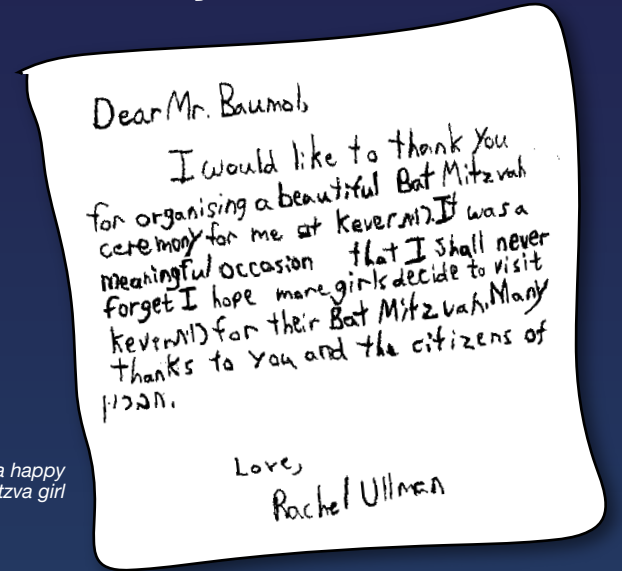 Dear Mr. Baumol,
I would like to thank you
for organising a beautiful Bat Mitzvah
ceremony for me at kever רות. It was a
meaningful occasion that I shall never
forget I hope more girls decide to visit
kever רות for their Bat Mitzvah. Many
thanks to you and the citizens of
חברון.
Love,
Rachel Ullman
a happy
tzva girl